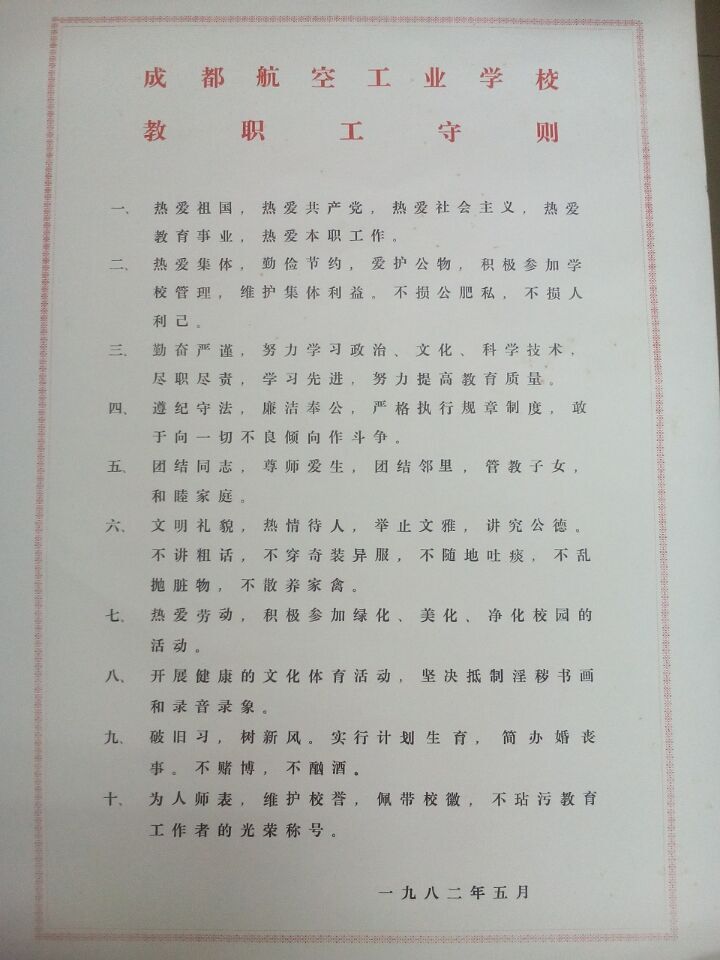 成都航空工业学校
教职工守则
一、热爱祖国，热爱共产党，热爱社会主义，热爱
教育事业，热爱本职工作。
二、热爱集体，勤俭节约，爱护公物，积极参加学
校管理，维护集体利益。不损公肥私，不损人
利己。
三、勤奋严谨，努力学习政治、文化、科学技术，
尽职尽责，学习先进，努力提高教育质量。
四、遵纪守法，廉洁奉公，严格执行规章制度，敢
于向一切不良倾向作斗争。
五、团结同志，尊师爱生，团结邻里，管教子女，
和睦家庭。
六、文明礼貌，热情待人，举止文雅，讲究公德。
不讲粗话，不穿奇装异服，不随地吐痰，不乱
抛脏物，不散养家禽。
七、热爱劳动，积极参加绿化、美化、净化校园的
活动。
八、开展健康的文化体育活动，坚决抵制淫秽书画
和录音录象。
九、破旧习，树新风。实行计划生育，简办婚丧
事。不赌博，不酗酒。
十、为人师表，维护校誉，佩带校徽，不玷污教育
工作者的光荣称号。
一九八二年五月